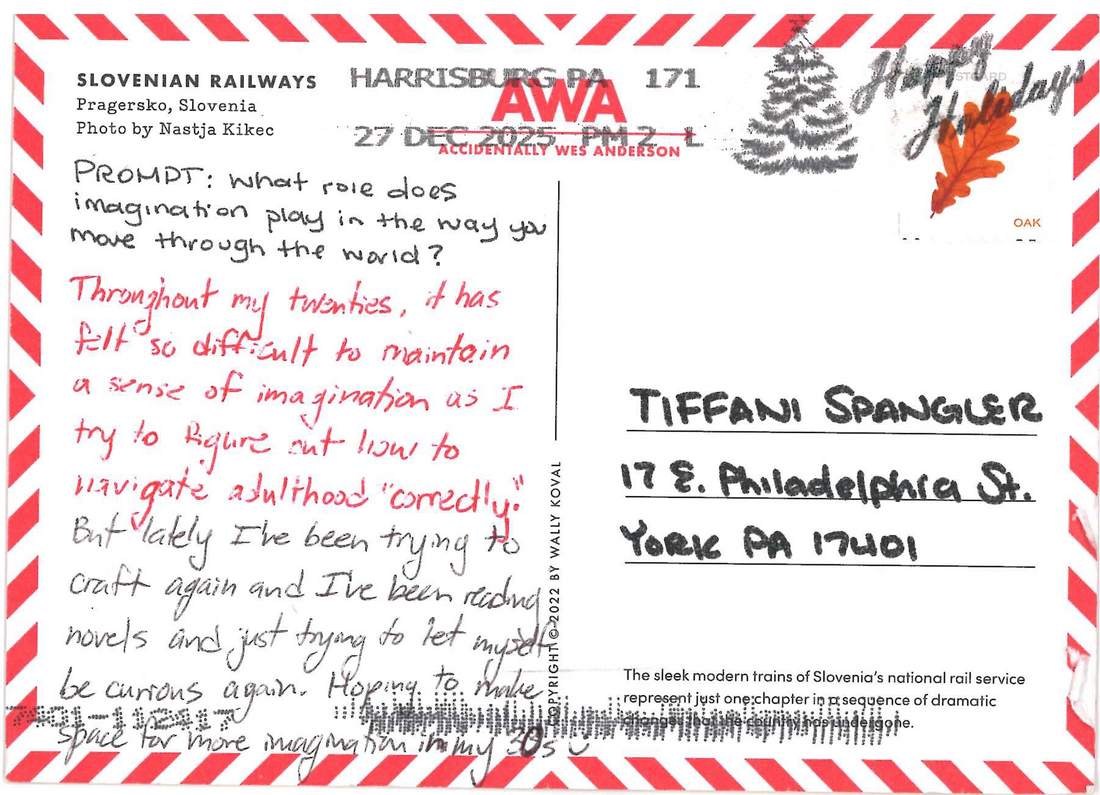 SLOVENIAN RAILWAYS
Pragersko, Slovenia
Photo by Nastja Kikec
HARRISBURG PA 171
27 DEC 2025 PM 2 L
AWA
ACCIDENTALLY WES ANDERSON
Happy
Holidays
OAK
PROMPT: what role does
imagination play in the way you
move through the world?
Throughout my twenties, it has
felt so difficult to maintain
a sense of imagination as I
try to figure out how to
navigate adulthood "correctly."
But lately I've been trying to
craft again and I've been reading
novels and just trying to let myself
be curious again. Hoping to make
space for more imagination in my 30s
COPYRIGHT © 2022 BY WALLY KOVAL
TIFFANI SPANGLER
17 E. Philadelphia St.
YORK PA 17401
The sleek modern trains of Slovenia's national rail service
represent just one chapter in a sequence of dramatic
changes that the country has undergone.